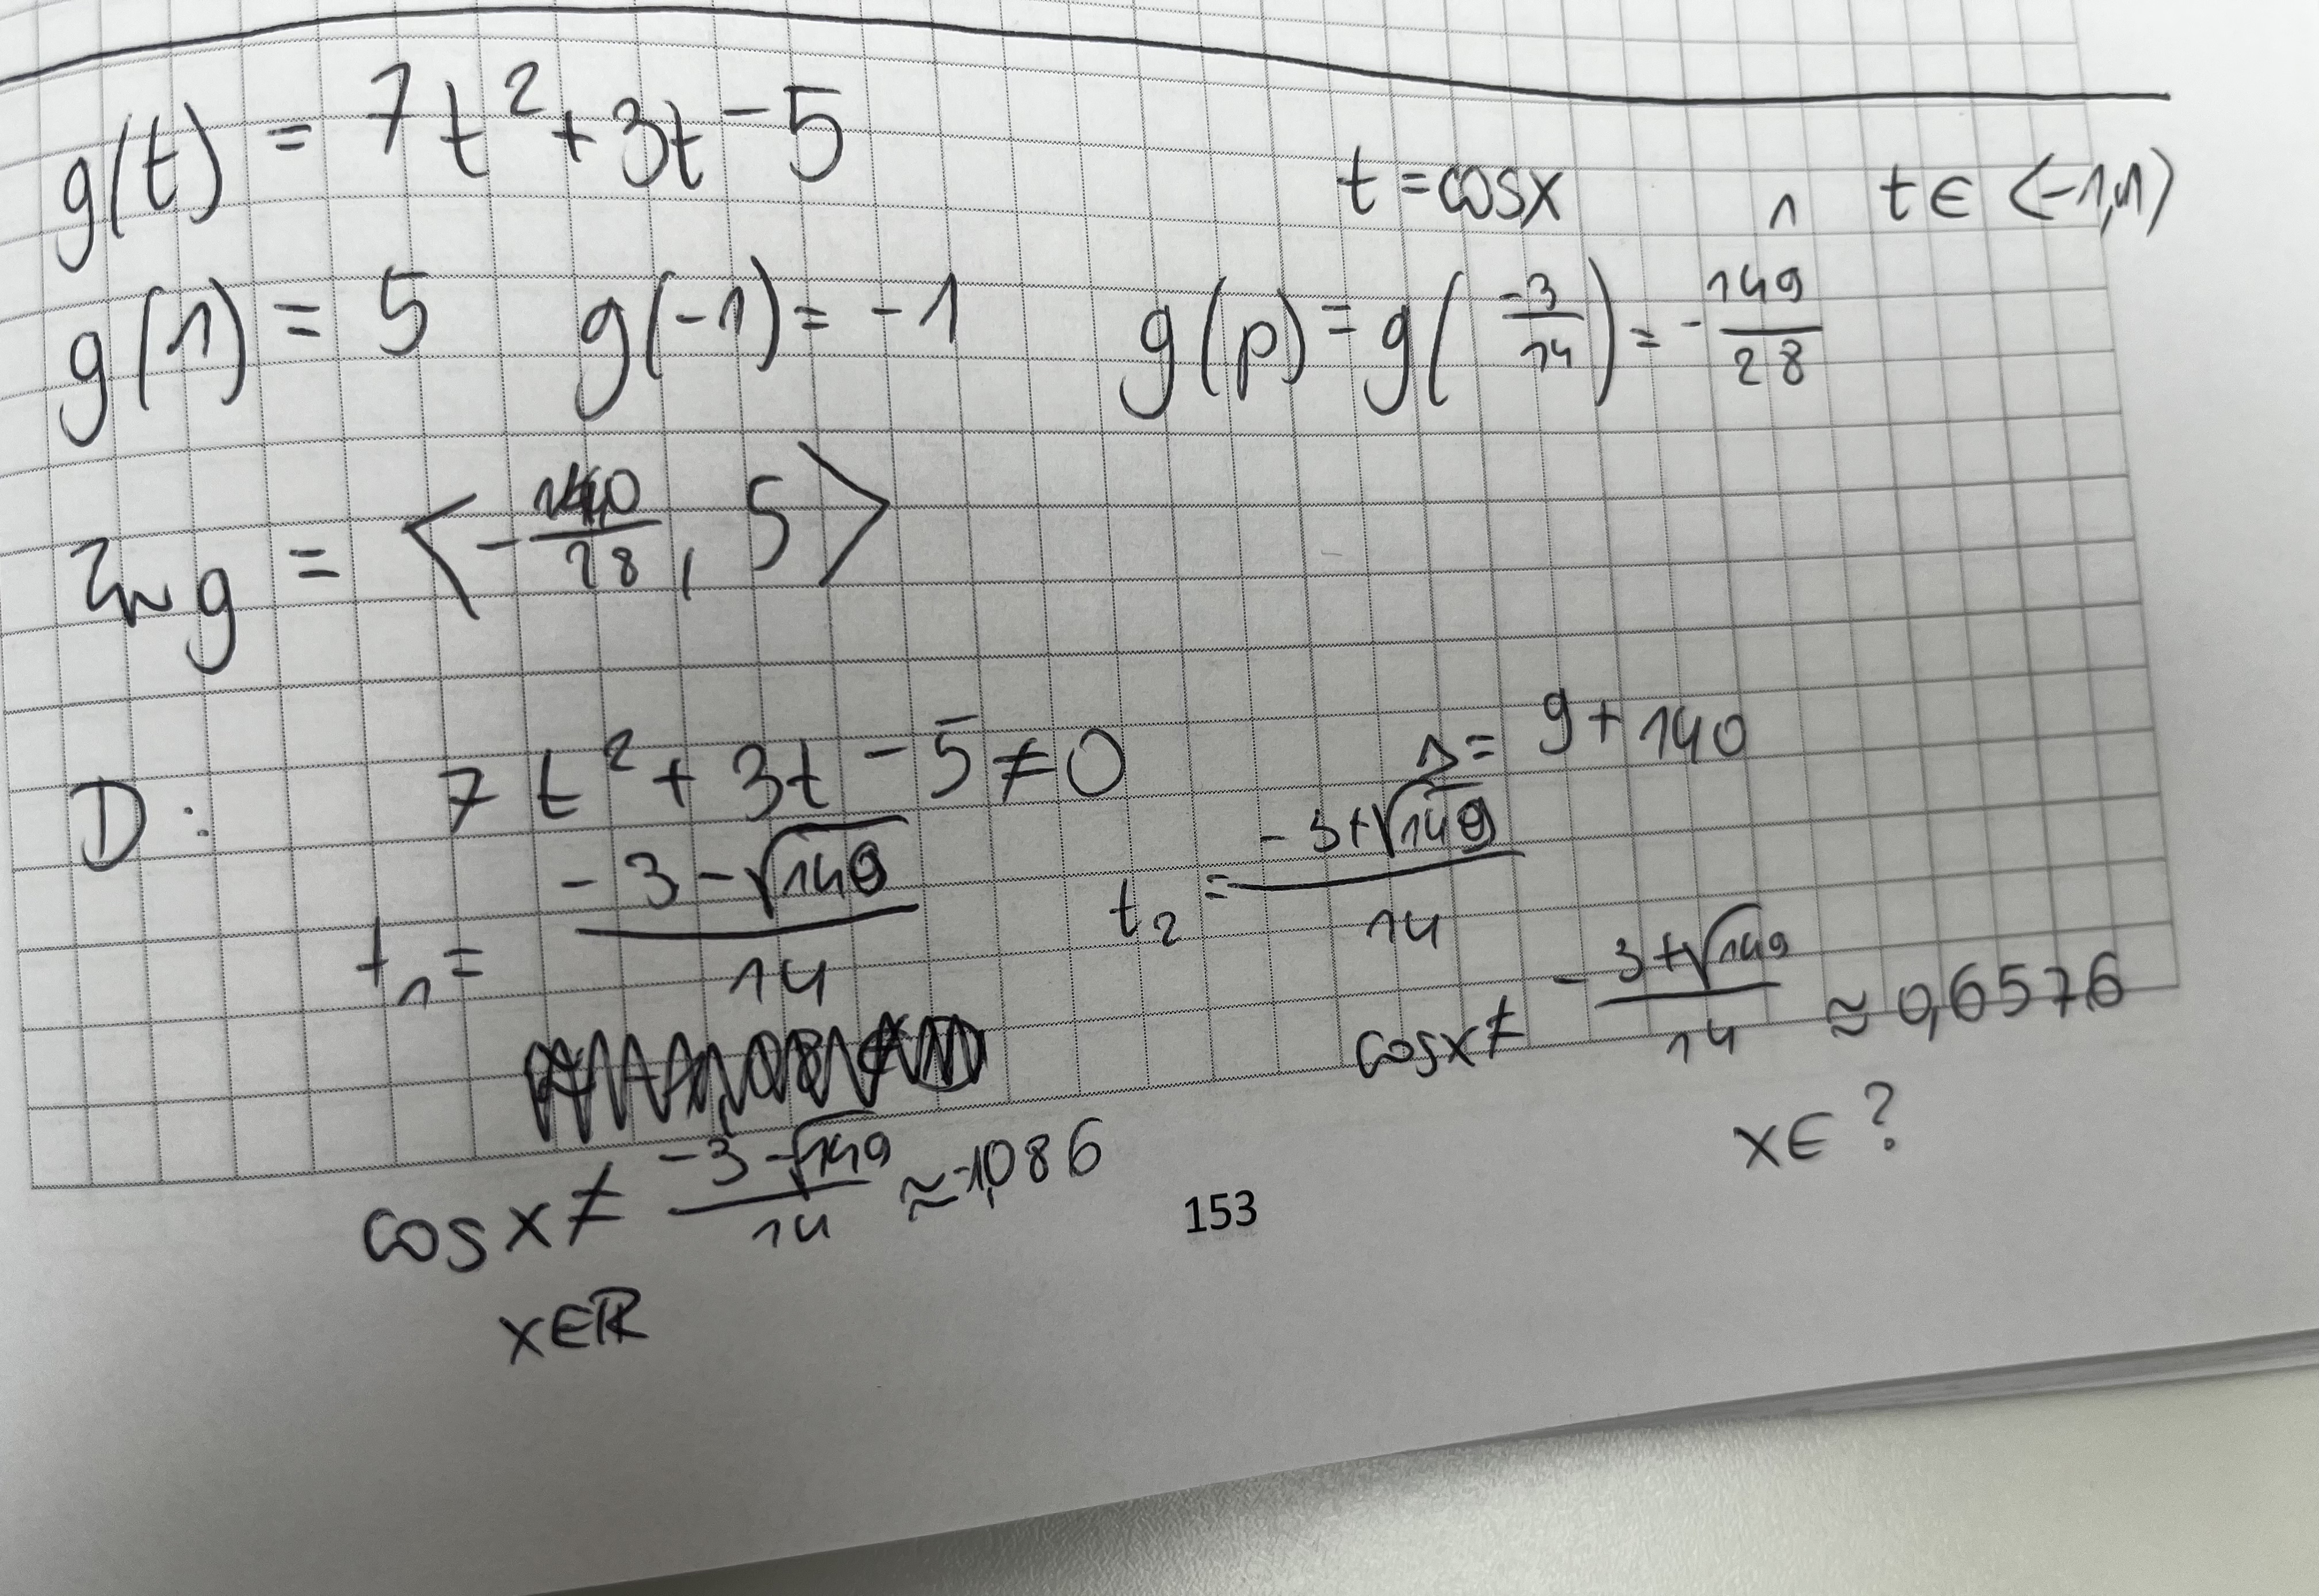 g(t) = 7t² + 3t - 5
t = cosx ∧ t ∈ ⟨-1,1⟩
g(1) = 5 g(-1) = -1 g(p) = g(-3/14) = -149/28
Zw g = ⟨-140/28, 5⟩
D: 7t² + 3t - 5 ≠ 0 Δ = 9 + 140
t₁ = (-3 - √149)/14 t₂ = (-3 + √149)/14
cosx ≠ (-3 + √149)/14 ≈ 0,6576
x ∈ ?
cosx ≠ (-3 - √149)/14 ≈ -1,086
x ∈ ℝ
153